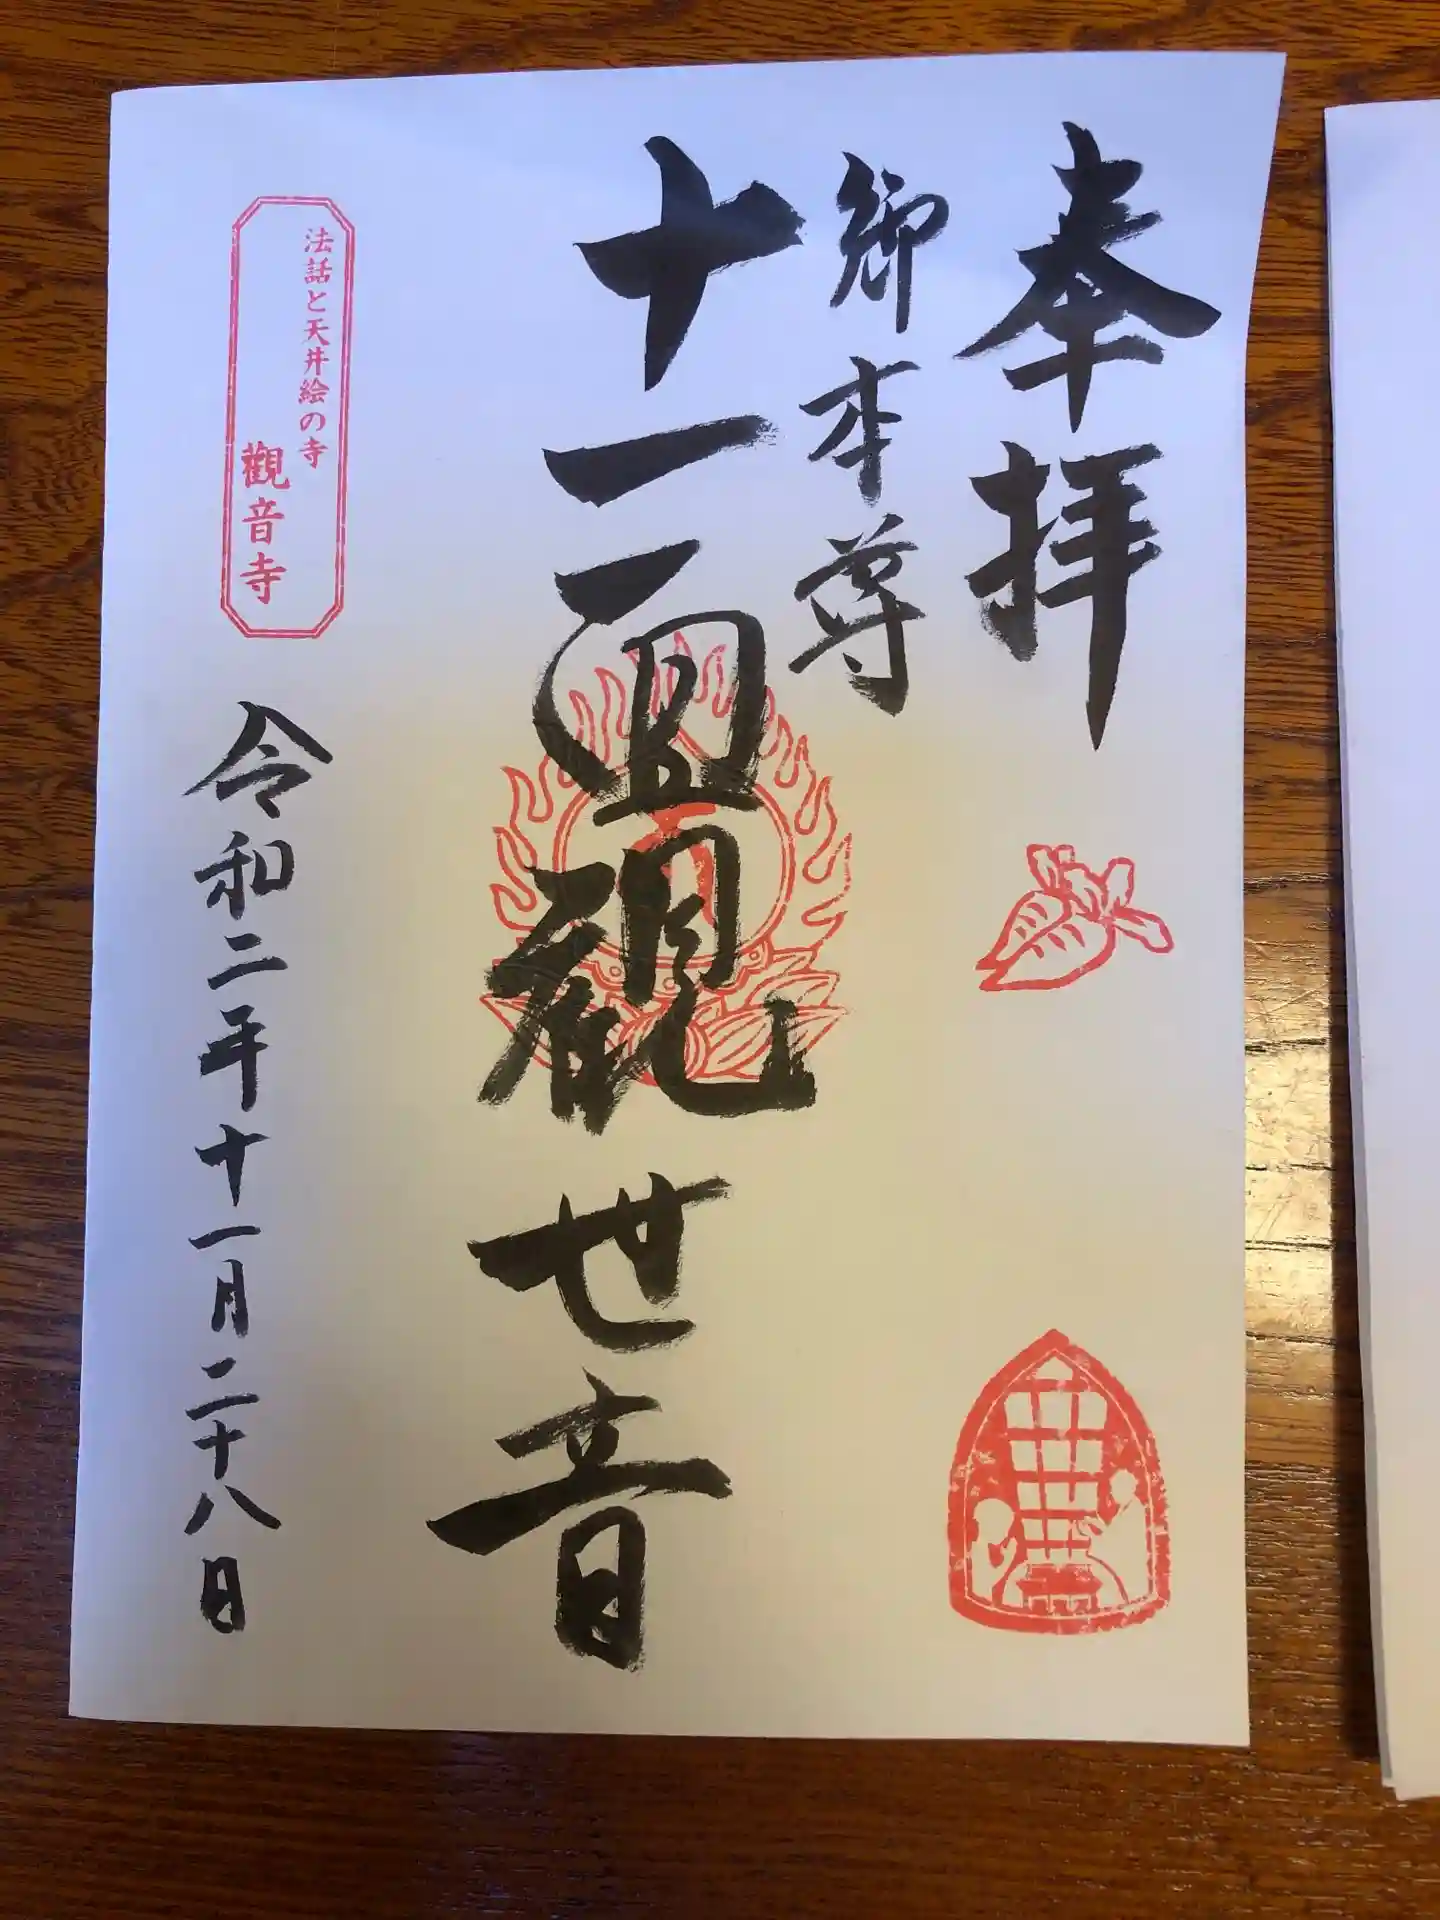 奉拝
御本尊
十一面観世音
法話と天井絵の寺
觀音寺
令和二年十一月二十八日